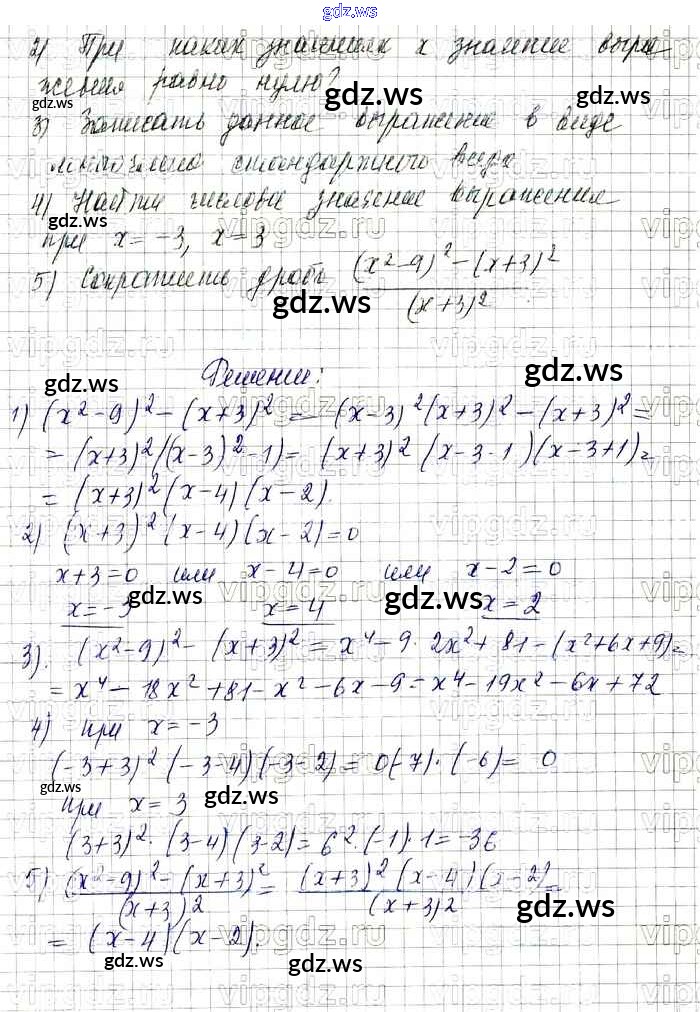 gdz.ws
2) При каких значениях x значение выра
жения равно нулю?
3) Записать данное выражение в виде
многочлена стандартного вида
4) Найти числовое значение выражения
при x = -3, x = 3
5) Сократить дробь ((x²-9)² - (x+3)²) / (x+3)²
Решение:
1) (x²-9)² - (x+3)² = (x-3)²(x+3)² - (x+3)² =
= (x+3)²((x-3)²-1) = (x+3)²(x-3-1)(x-3+1) =
= (x+3)²(x-4)(x-2)
2) (x+3)²(x-4)(x-2)=0
x+3=0 или x-4=0 или x-2=0
x=-3 x=4 x=2
3). (x²-9)² - (x+3)² = x⁴ - 9·2x² + 81 - (x²+6x+9) =
= x⁴ - 18x² + 81 - x² - 6x - 9 = x⁴ - 19x² - 6x + 72
4) при x = -3
(-3+3)²(-3-4)(-3-2) = 0(-7)·(-6) = 0
при x = 3
(3+3)²·(3-4)(3-2) = 6²·(-1)·1 = -36
5) ((x²-9)² - (x+3)²) / (x+3)² = ((x+3)²(x-4)(x-2)) / (x+3)² =
= (x-4)(x-2).